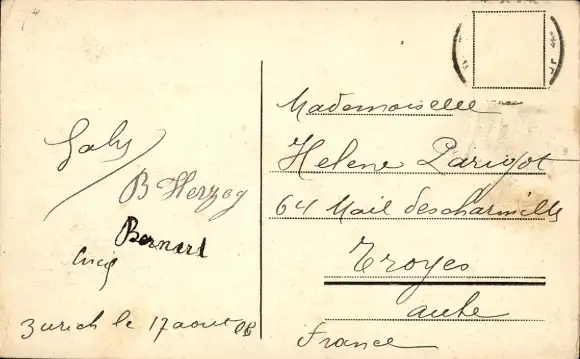 Gaby
B Herzog
Bernard
Zurich le 17 aout 06
Mademoiselle
Helene Parigot
64 Mail des charmilles
Troyes
aube
France